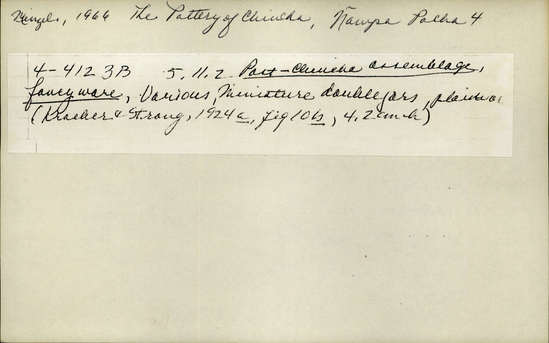 Menzel, 1966 The Pottery of Chincha, Ñawpa Pacha 4
4-4123B 5.11.2 Post-Chincha assemblage,
fancy ware, Various, Miniature double jars, plainware
(Kroeber & Strong, 1924a, fig 10b, 4.2 cm h)